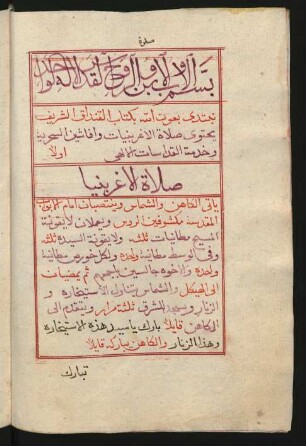 صلوة
بسم الاب والابن والروح القدس الاله الواحد
نبتدي بعون الله بكتاب القنداق الشريف
يحتوي صلاة الاغربنيات وافاشين السحرية
وخدمة القداسات الالهي اولاً
صلاة الاغربنيا
ياتي الكاهن والشماس وينتصبان امام الابواب
المقدسة مكشوفين الروس ويعملان لايقونة
المسيح مطانيات ثلث ولايقونة السيدة ثلث
وفي الوسط مطانية واحدة ولكل خورص مطانية
واحدة والاخوه جالسين باجمعهم ثم يمضيان
الى الهيكل والشماس يتناول الاستيخارة و
الزنار ويسجد للشرق ثلثة مرار ويتقدم الى
الكاهن قايلاً بارك ياسيد هذه الاستيخارة
وهذا الزنار والكاهن يباركه قايلاً
تبارك